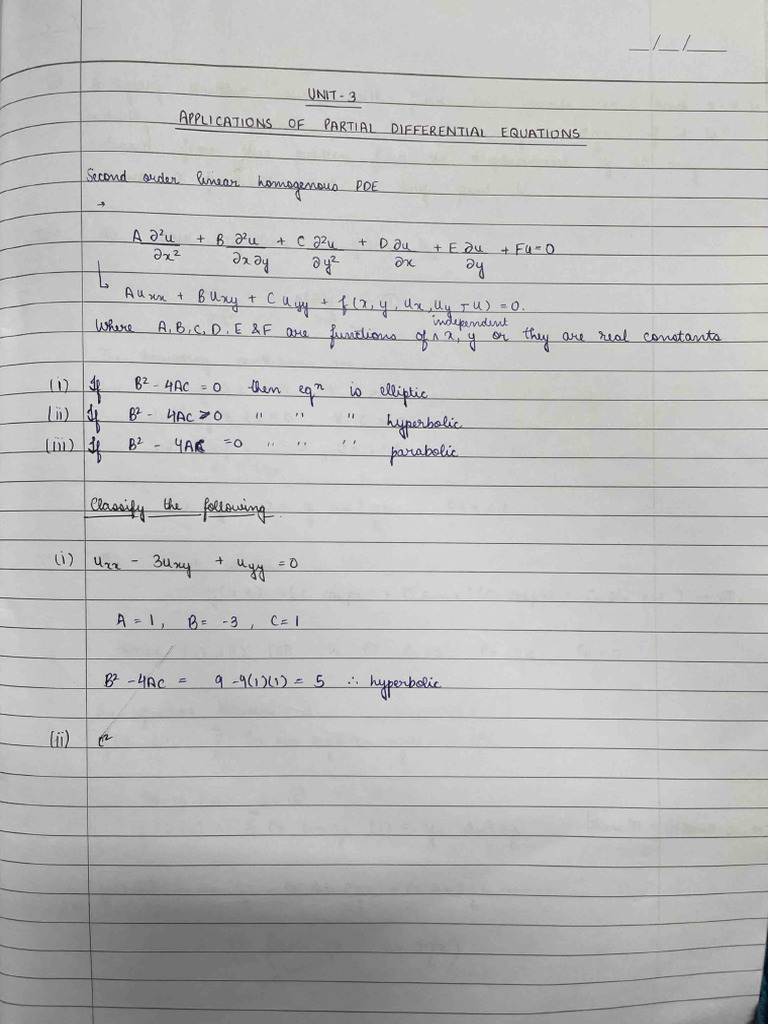 __/__/____
UNIT-3
APPLICATIONS OF PARTIAL DIFFERENTIAL EQUATIONS
Second order linear homogenous PDE
→
A ∂²u/∂x² + B ∂²u/∂x∂y + C ∂²u/∂y² + D ∂u/∂x + E ∂u/∂y + Fu = 0
↳ A uxx + B uxy + C uyy + f(x, y, ux, uy, u) = 0.
Where A, B, C, D, E & F are functions of ^independent x, y or they are real constants
(i) If B² - 4AC = 0 then eqⁿ is elliptic
(ii) If B² - 4AC > 0 " " " hyperbolic
(iii) If B² - 4AC = 0 " " " parabolic
Classify the following.
(i) uxx - 3uxy + uyy = 0
A = 1, B = -3, C = 1
B² - 4AC = 9 - 4(1)(1) = 5 ∴ hyperbolic
(ii) c²